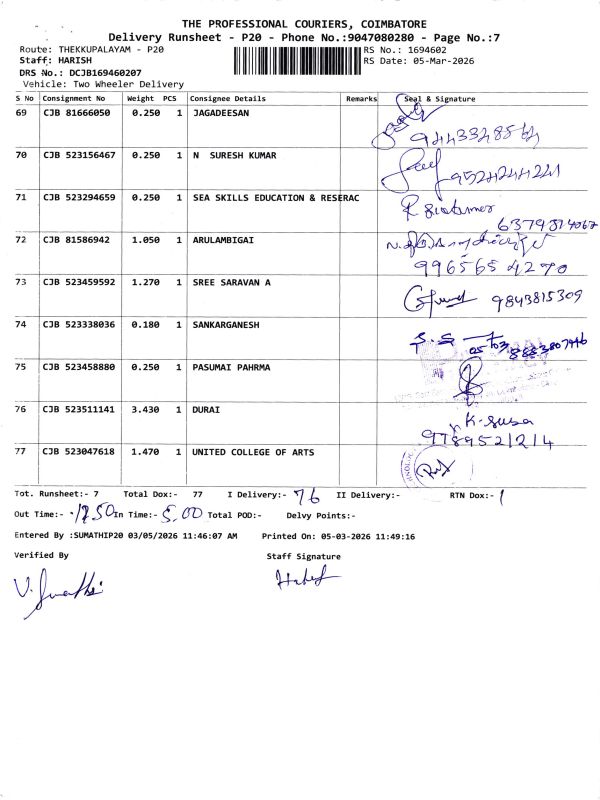 THE PROFESSIONAL COURIERS, COIMBATORE
Delivery Runsheet - P20 - Phone No.:9047080280 - Page No.:7
Route: THEKKUPALAYAM - P20 RS No.: 1694602
Staff: HARISH RS Date: 05-Mar-2026
DRS No.: DCJB169460207
Vehicle: Two Wheeler Delivery
S No Consignment No Weight PCS Consignee Details Remarks Seal & Signature
69 CJB 81666050 0.250 1 JAGADEESAN
70 CJB 523156467 0.250 1 N SURESH KUMAR
9524244221
71 CJB 523294659 0.250 1 SEA SKILLS EDUCATION & RESERAC
6379814067
72 CJB 81586942 1.050 1 ARULAMBIGAI
9965654270
73 CJB 523459592 1.270 1 SREE SARAVAN A
9843815309
74 CJB 523338036 0.180 1 SANKARGANESH
75 CJB 523458880 0.250 1 PASUMAI PAHRMA
76 CJB 523511141 3.430 1 DURAI
K-susa
9789521214
77 CJB 523047618 1.470 1 UNITED COLLEGE OF ARTS
Tot. Runsheet:- 7 Total Dox:- 77 I Delivery:- 76 II Delivery:- RTN Dox:- 1
Out Time:- 12.50 In Time:- 5.00 Total POD:- Delvy Points:-
Entered By :SUMATHIP20 03/05/2026 11:46:07 AM Printed On: 05-03-2026 11:49:16
Verified By Staff Signature
V. Sumathi